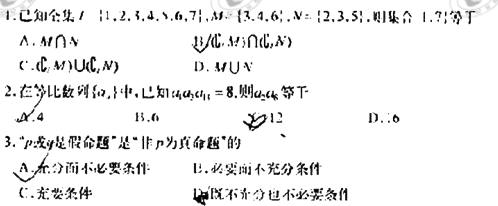 1.已知全集I={1,2,3,4,5,6,7},M={3,4,6},N={2,3,5},则集合{1,7}等于
A.M∩N B.(∁M)∩(∁N)
C.(∁M)∪(∁N) D.M∪N
2.在等比数列{aₙ}中,已知 = 8,则 等于
A.4 B.6 C.12 D.16
3.“p或q是假命题”是“非p为真命题”的
A.充分而不必要条件 B.必要而不充分条件
C.充要条件 D.既不充分也不必要条件